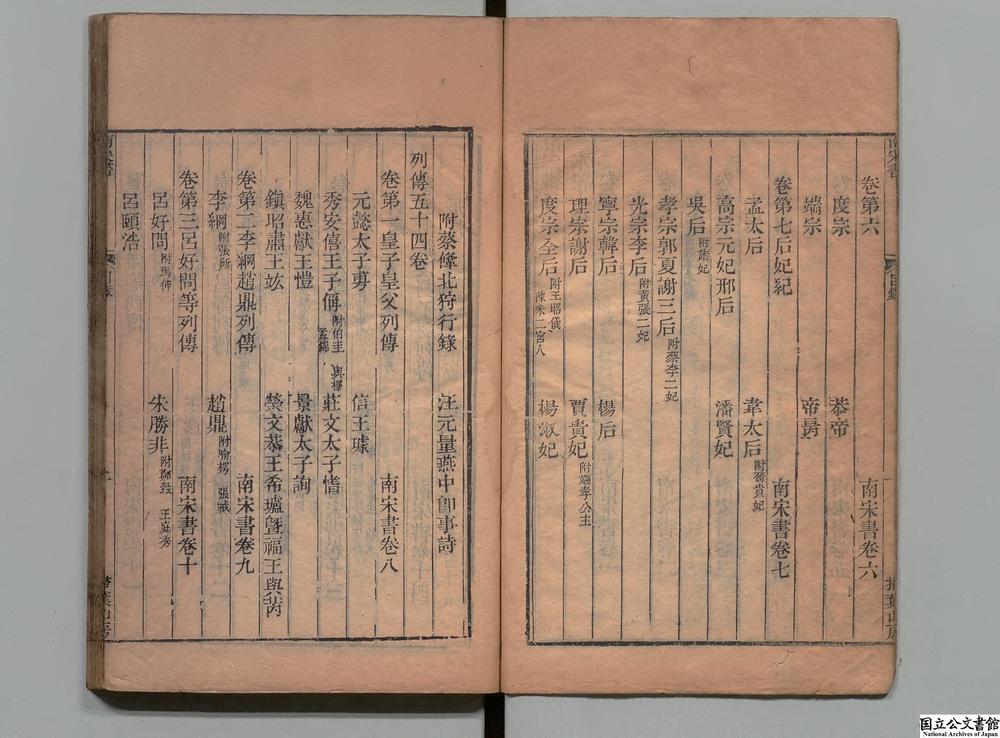 卷第六 南宋書卷六
度宗 恭帝
端宗 帝昺
卷第七后妃紀 南宋書卷七
孟太后 韋太后附喬貴妃
高宗元妃邢后 潘賢妃
吳后附諸妃
孝宗郭夏謝三后附蔡李二妃
光宗李后附黃張二妃
寧宗韓后 楊后
理宗謝后 賈貴妃附端孝公主
度宗全后附王昭儀陳朱二宮人 楊淑妃
附蔡鞗北狩行錄 汪元量燕中卽事詩
列傳五十四卷
卷第一皇子皇父列傳 南宋書卷八
元懿太子旉 信王璩
秀安僖王子偁附伯圭 與檡 莊文太子愭
魏惠獻王愷 景獻太子詢
鎮昭肅王竑 榮文恭王希瓐曁福王與芮
卷第二李綱趙鼎列傳 南宋書卷九
李綱附張所 趙鼎附喻樗 張戒
卷第三呂好問等列傳 南宋書卷十
呂好問附馬伸 朱勝非附鄭瑴 王庭秀
呂頤浩
南宋書 目錄 掃葉山房
国立公文書館
National Archives of Japan